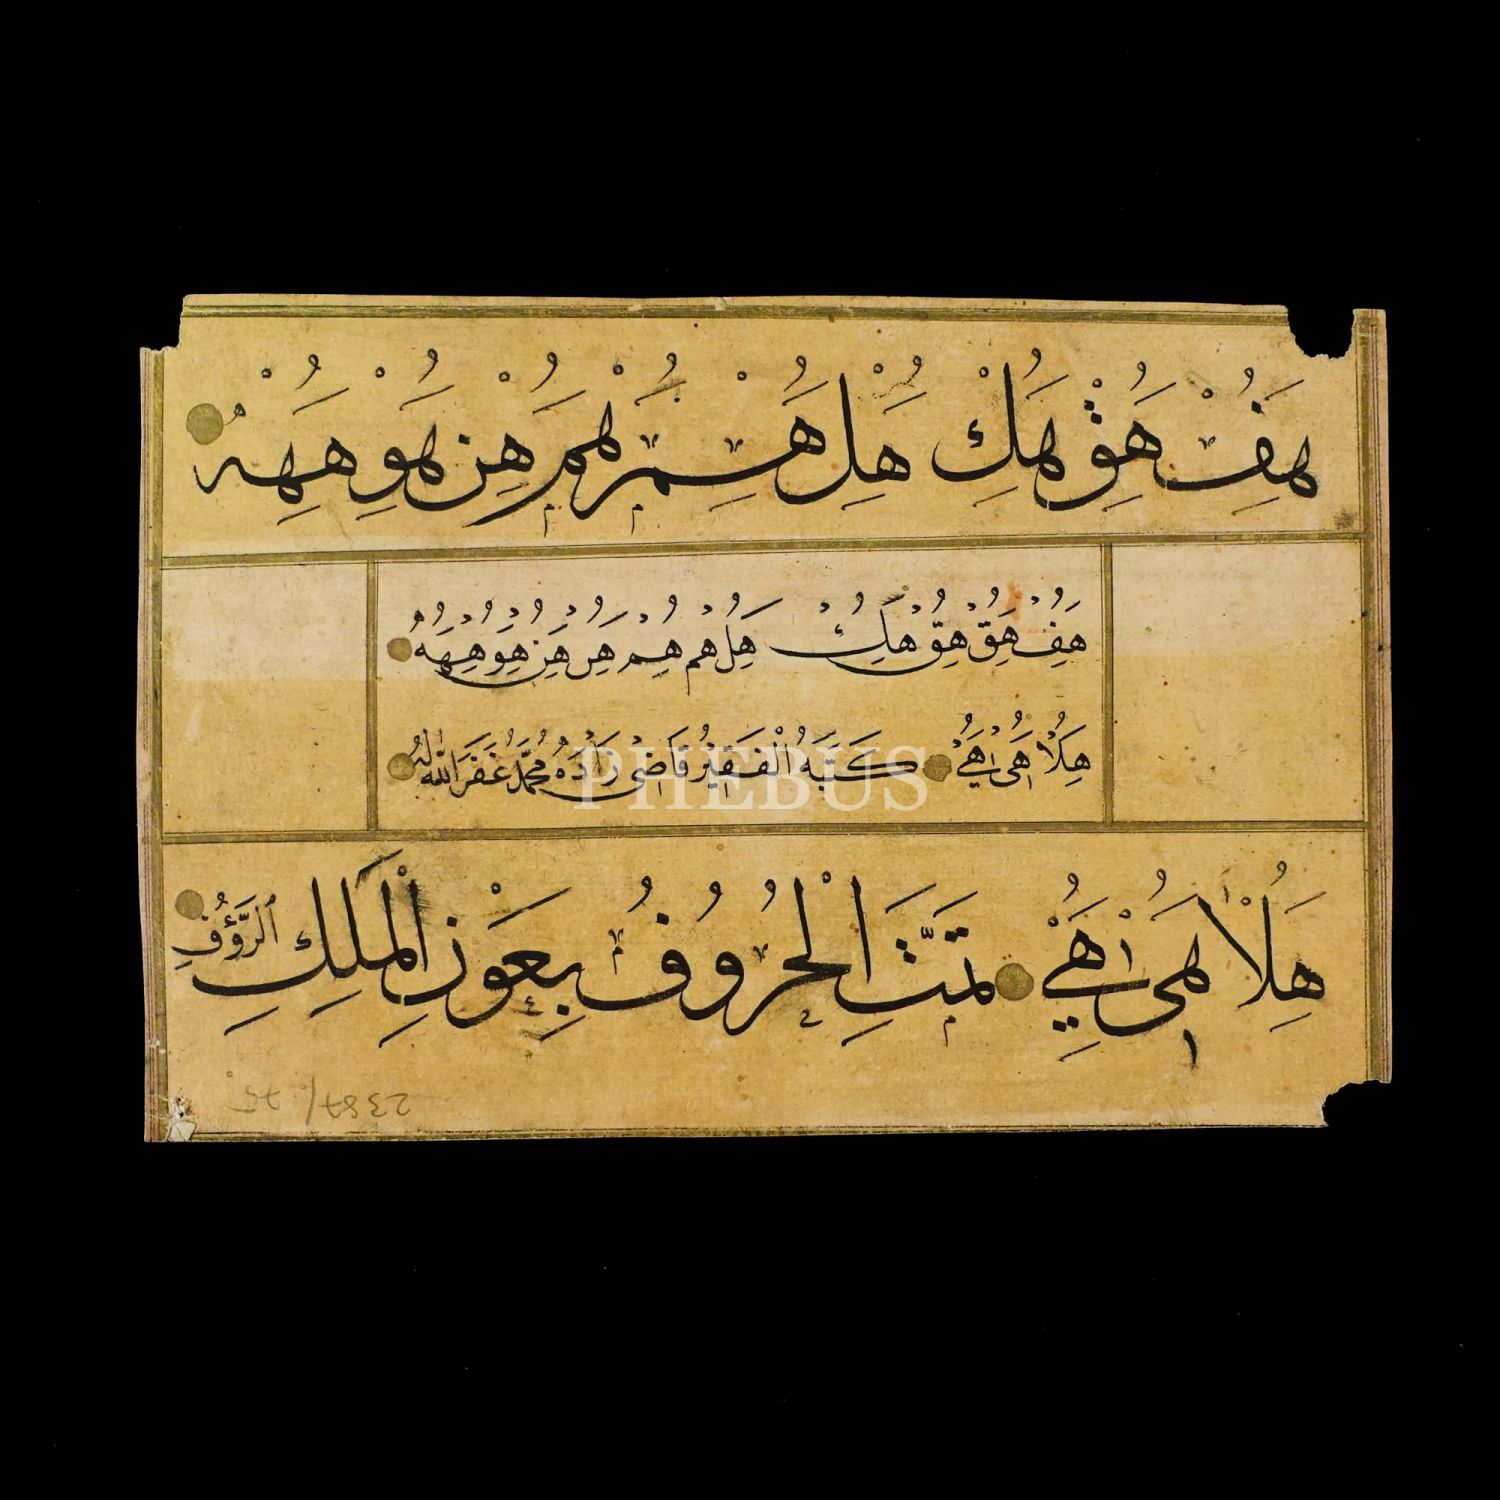 هَفُِ هَقُِ هَكُِ هَلُِ هَسُِ هَمُِ هَنُِ هَوُِ هَهُِ
هَفُِ هَقُِ هَكُِ هَلُِ هم هَنُِ هَوُِ هَهُِ
هَلُا هَىُِ كَتَبَهُ الْفَقِيرُ قَاضِى زَادَه مُحَمَّدْ غَفَرَ اللهُ لَهُ
PHEBUS
هَلُا هَىُِ تَمَّتِ الْحُرُوفُ بِعَوْنِ الْمَلِكِ الرَّؤُفِ
2387/75